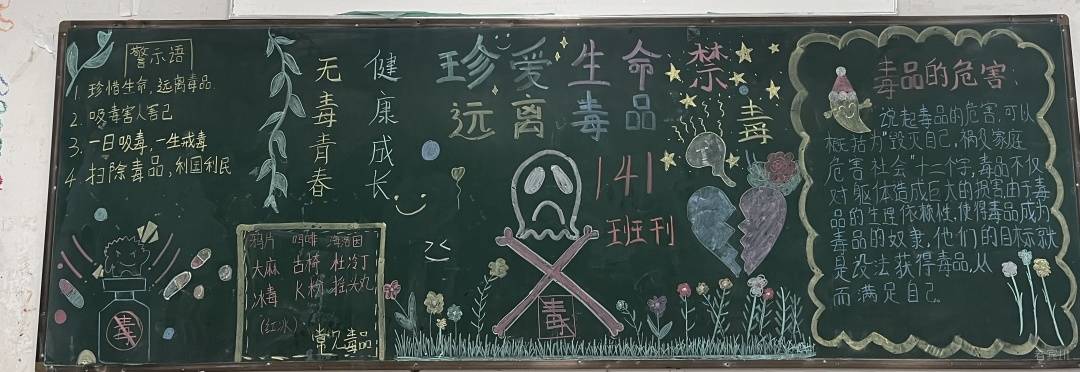 警示语
1. 珍惜生命，远离毒品.
2. 吸毒害人害己
3. 一日吸毒，一生戒毒
4. 扫除毒品，利国利民
无毒青春
健康成长
珍爱生命
远离毒品
禁毒
141
班刊
毒
鸦片 吗啡 海洛因
大麻 古柯 杜冷丁
冰毒 K粉 摇头丸
(红冰)
常见毒品
毒
毒品的危害
说起毒品的危害，可以
概括为"毁灭自己，祸及家庭
危害社会"十二个字，毒品不仅
对躯体造成巨大的损害由于毒
品的生理依赖性，使得毒品成为
毒品的奴隶，他们的目标就
是设法获得毒品，从
而满足自己.